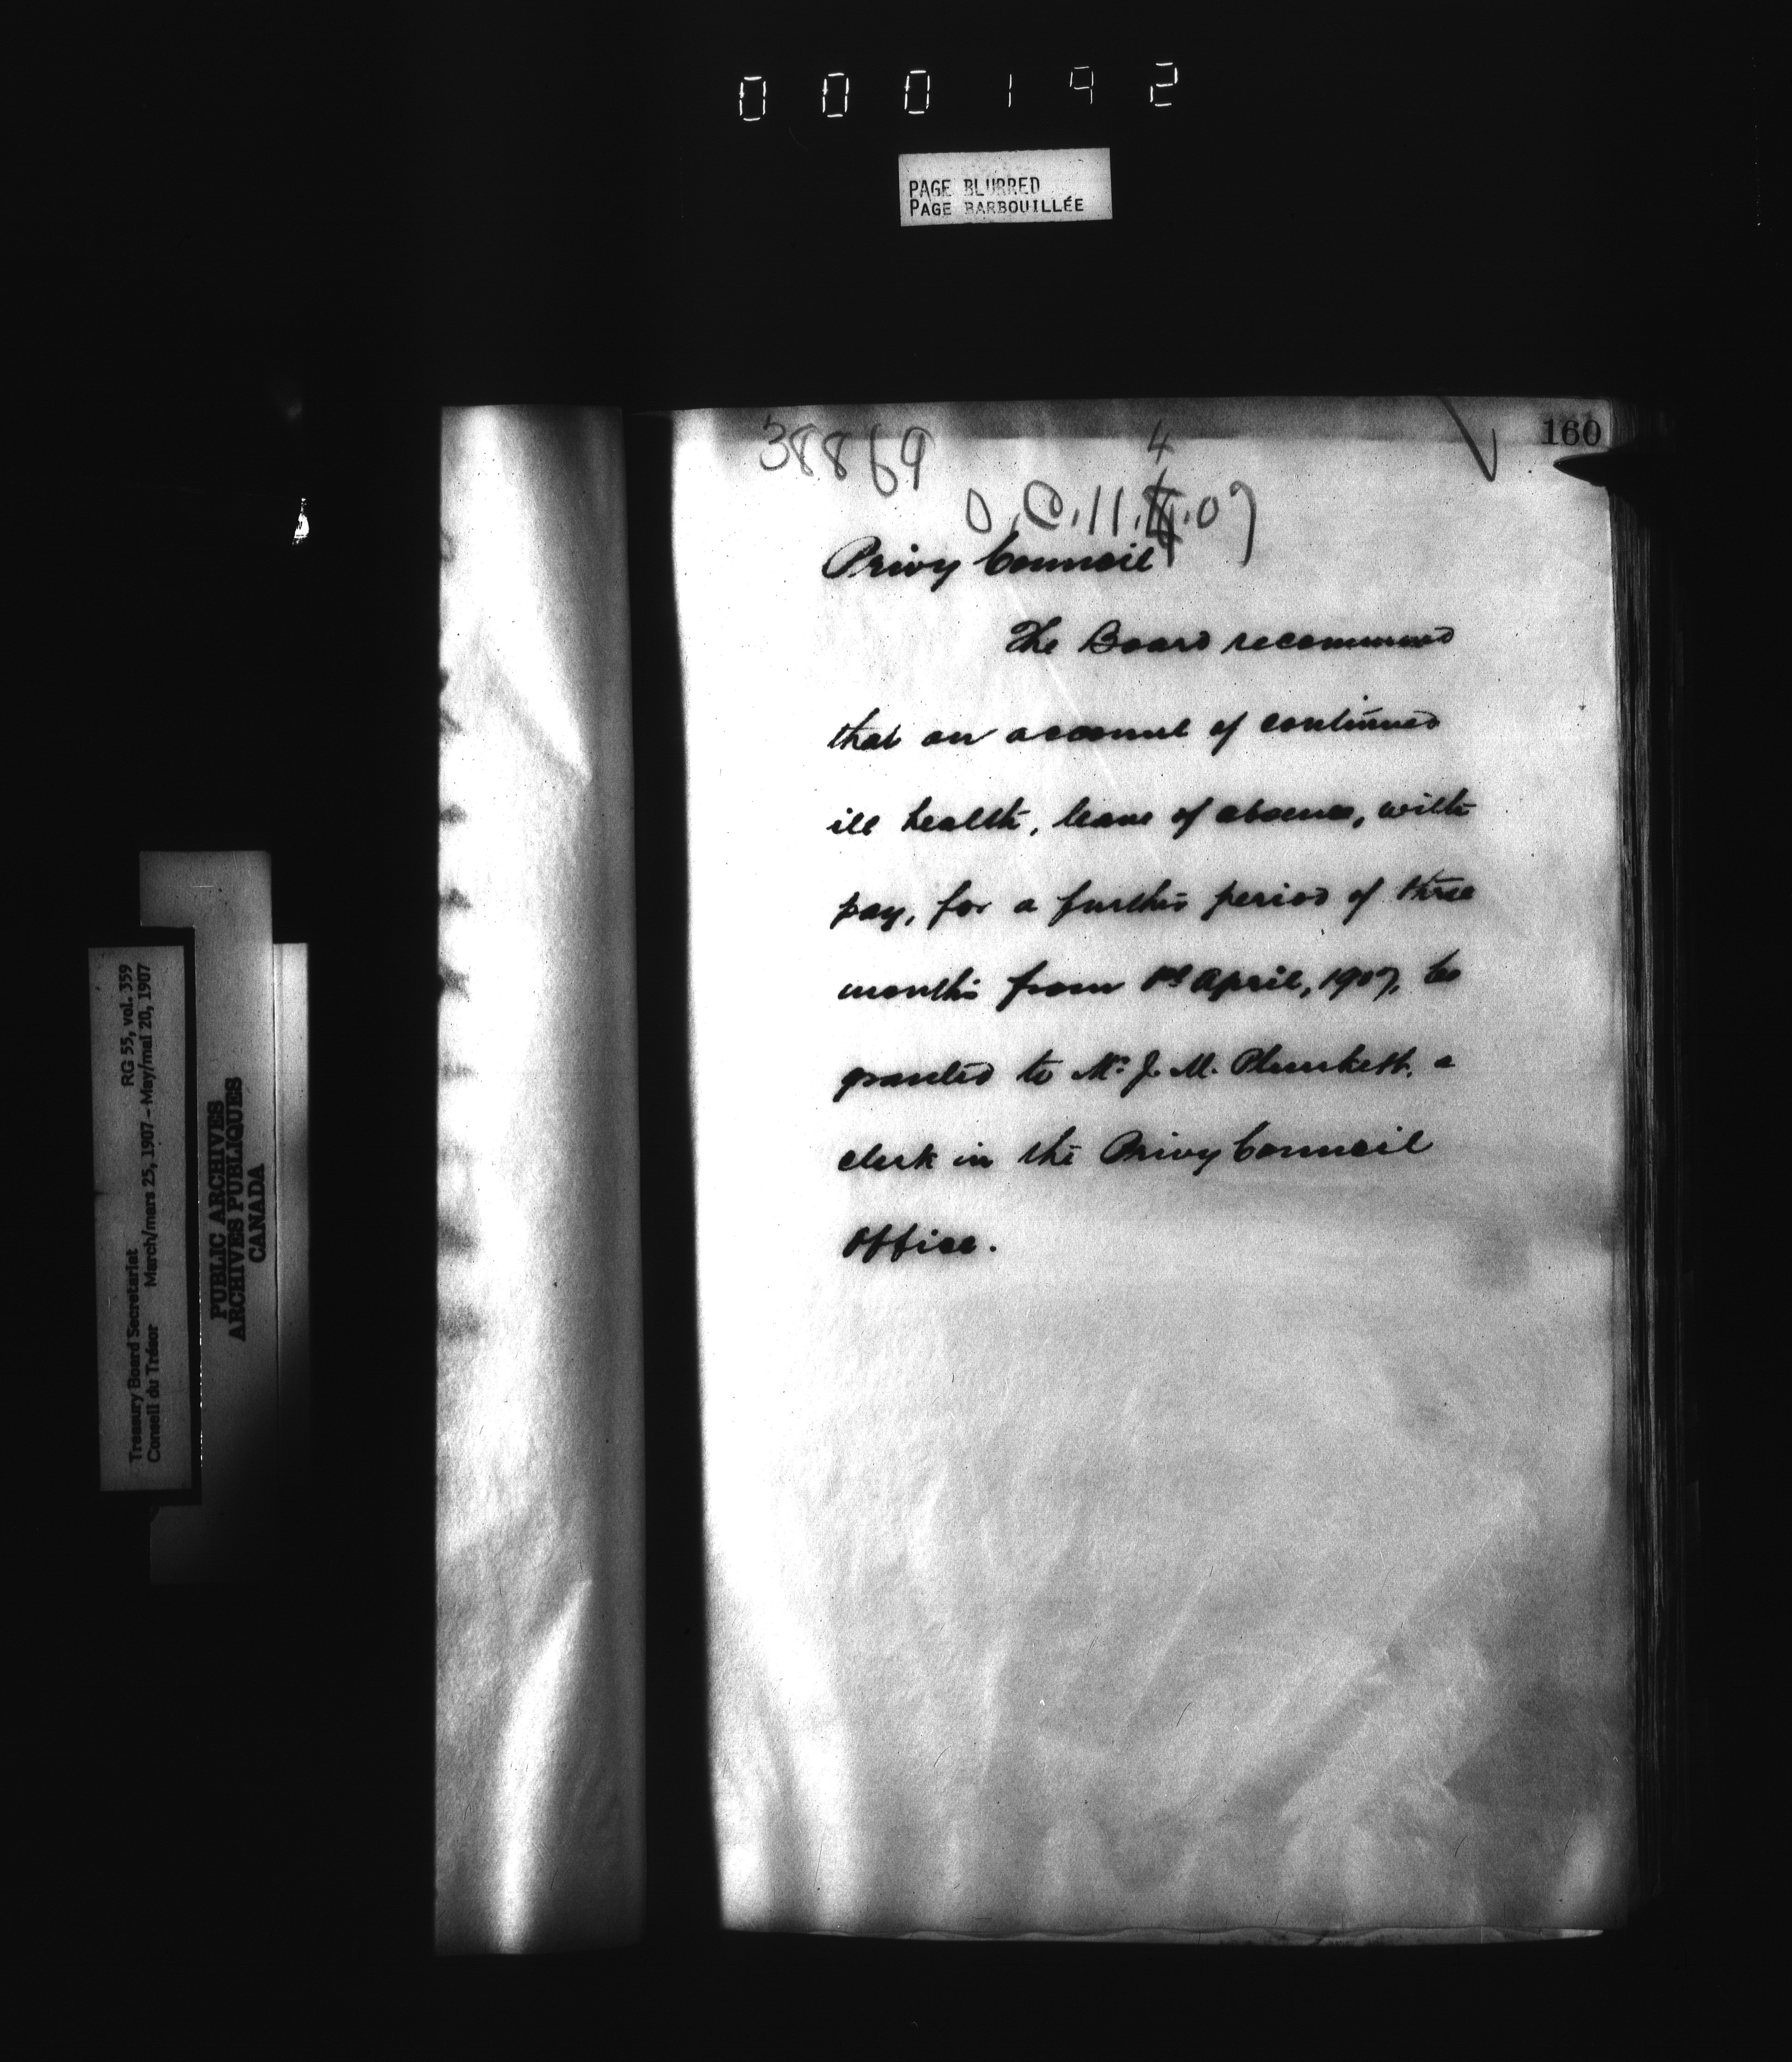 000192
PAGE BLURRED
PAGE BARBOUILLÉE
160
38869
4
O.C. 11. .07
Privy Council
The Board recommend
that on account of continued
ill health, leave of absence, with
pay, for a further period of three
months from 1st April, 1907, be
granted to Mr. J. M. Plunkett, a
clerk in the Privy Council
Office.
Treasury Board Secretariat RG 55, vol. 359
Conseil du Trésor March/mars 25, 1907 – May/mai 20, 1907
PUBLIC ARCHIVES
ARCHIVES PUBLIQUES
CANADA